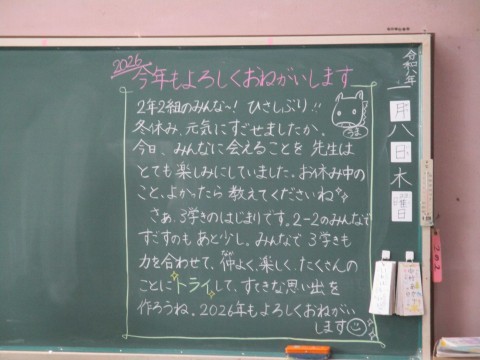 2026
今年もよろしくおねがいします
2年2組のみんな〜! ひさしぶり!!
冬休み、元気にすごせましたか。
今日、みんなに会えることを 先生は
とても楽しみにしていました。お休み中の
こと、よかったら 教えてくださいね
さあ、3学きのはじまりです。2-2のみんなで
すごすのも あと少し。みんなで 3学きも
力を合わせて、仲よく、楽しく、たくさんの
ことにトライして、すてきな思い出を
作ろうね。2026年もよろしくおねがい
します
うま
令和八年
一月八日木曜日